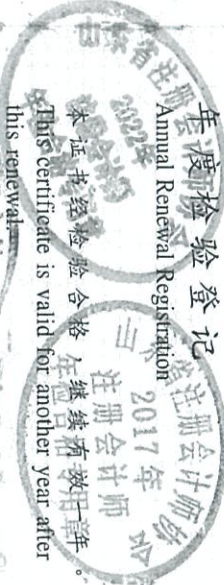 年度检验登记
Annual Renewal Registration
本证书经检验合格，继续有效一年。
This certificate is valid for another year after
this renewal.
省注册会
2022年
省注册会计师协
2017年
注册会计师